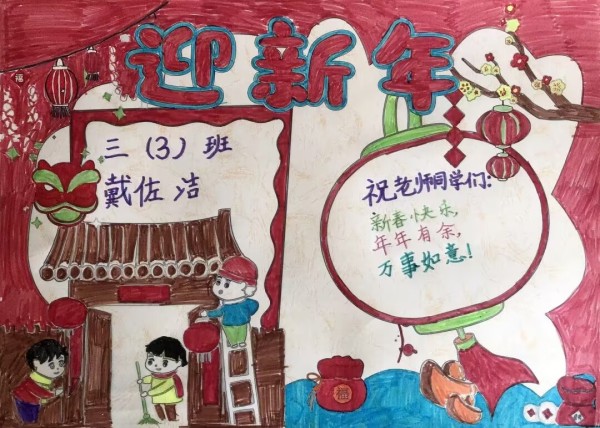 迎新年
三（3）班
戴佐洁
祝老师同学们：
新春快乐，
年年有余，
万事如意！
福
福